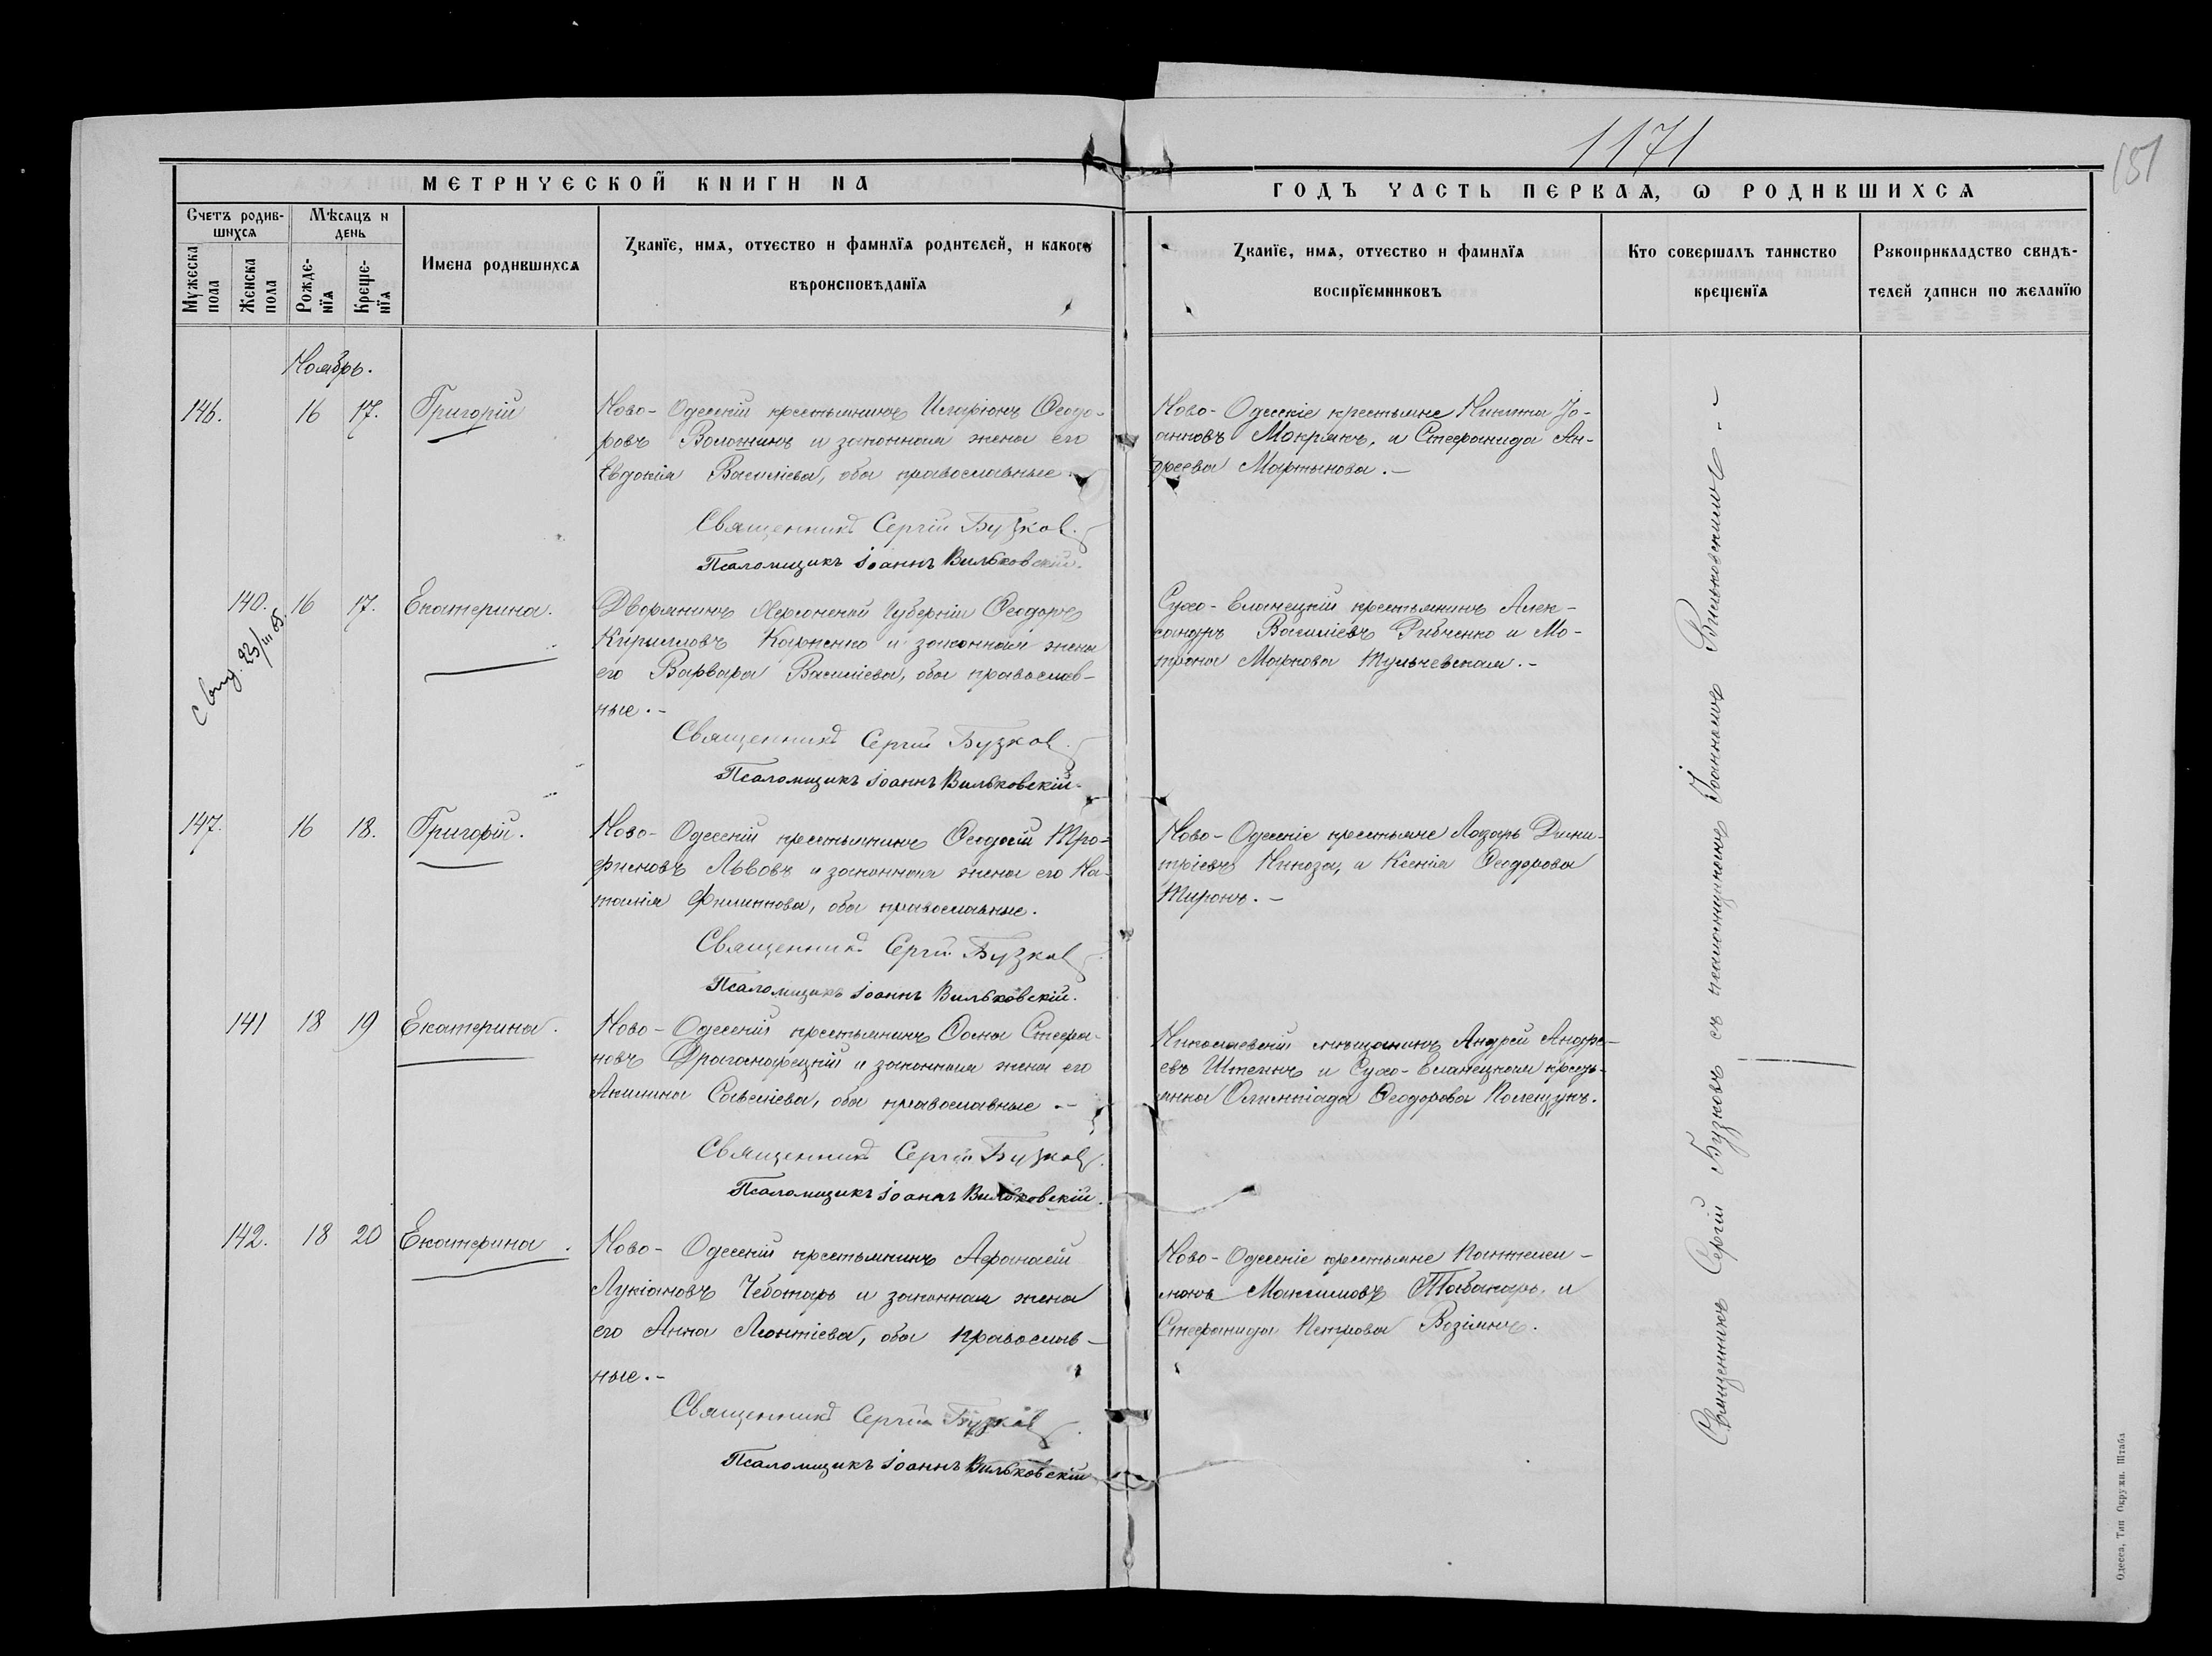 1171
151
МЕТРИЧЕСКОЙ КНИГИ НА
ГОДЪ ЧАСТЬ ПЕРВАЯ, Ѡ РОДИВШИХСЯ
Счетъ родив-
шихся
Мѣсяцъ и
день
Мужеска
пола
Женска
пола
Рожде-
нїя
Креще-
нїя
Имена родившихся
Званїе, имя, отчество и фамилїя родителей, и какого
вѣроисповѣданїя
Званїе, имя, отчество и фамилїя
воспрїемниковъ
Кто совершалъ таинство
крещенїя
Рукоприкладство свидѣ-
телей записи по желанїю
Ноябрь.
146. 16 17. Григорій
Ново-Одесскій крестьянинъ Иларіонъ Ѳеодо-
ровъ Волошинъ и законная жена его
Евдокія Василіева, оба православные.
Священникъ Сергій Бузковъ.
Псаломщикъ Іоаннъ Вильковскій.
Ново-Одесскіе крестьяне Никита Іо-
анновъ Мокрякъ, и Стефанида Ан-
дреева Мартынова.-
140. 16 17. Екатерина.
23/III 05.
Дворянинъ Херсонской Губерніи Ѳеодоръ
Кирилловъ Корненко и законная жена
его Варвара Василіева, оба православ-
ные.-
Священникъ Сергій Бузковъ.
Псаломщикъ Іоаннъ Вильковскій.
Сухо-Еланецкій крестьянинъ Алек-
сандръ Василіевъ Рибченко и Мо-
трона Маркова Тульчевская.-
147. 16 18. Григорій.
Ново-Одесскій крестьянинъ Ѳеодосій Тро-
фимовъ Львовъ и законная жена его На-
талія Филиппова, оба православные.
Священникъ Сергій Бузковъ.
Псаломщикъ Іоаннъ Вильковскій.
Ново-Одесскіе крестьяне Лазарь Дими-
тріевъ и Ксенія Ѳеодорова
Миронъ.-
141 18 19 Екатерина.
Ново-Одесскій крестьянинъ Ѳома Стефа-
новъ и законная жена его
Акилина Савеліева, оба православные.-
Священникъ Сергій Бузковъ.
Псаломщикъ Іоаннъ Вильковскій.
Николаевскій мѣщанинъ Андрей Андре-
евъ и Сухо-Еланецкая кресть-
янка Олимпіада Ѳеодорова Колещукъ.
142. 18 20 Екатерина.
Ново-Одесскій крестьянинъ Афанасій
Лукіановъ Чеботарь и законная жена
его Анна Леонтіева, оба православ-
ные.-
Священникъ Сергій Бузковъ.
Псаломщикъ Іоаннъ Вильковскій
Ново-Одесскіе крестьяне Пантелеи-
монъ Максимовъ Табакарь, и
Стефанида Петрова Возіянъ.
Священникъ Сергій Бузковъ съ псаломщикомъ Іоанномъ Вильковскимъ.-
Одесса, Тип Окружн. Штаба